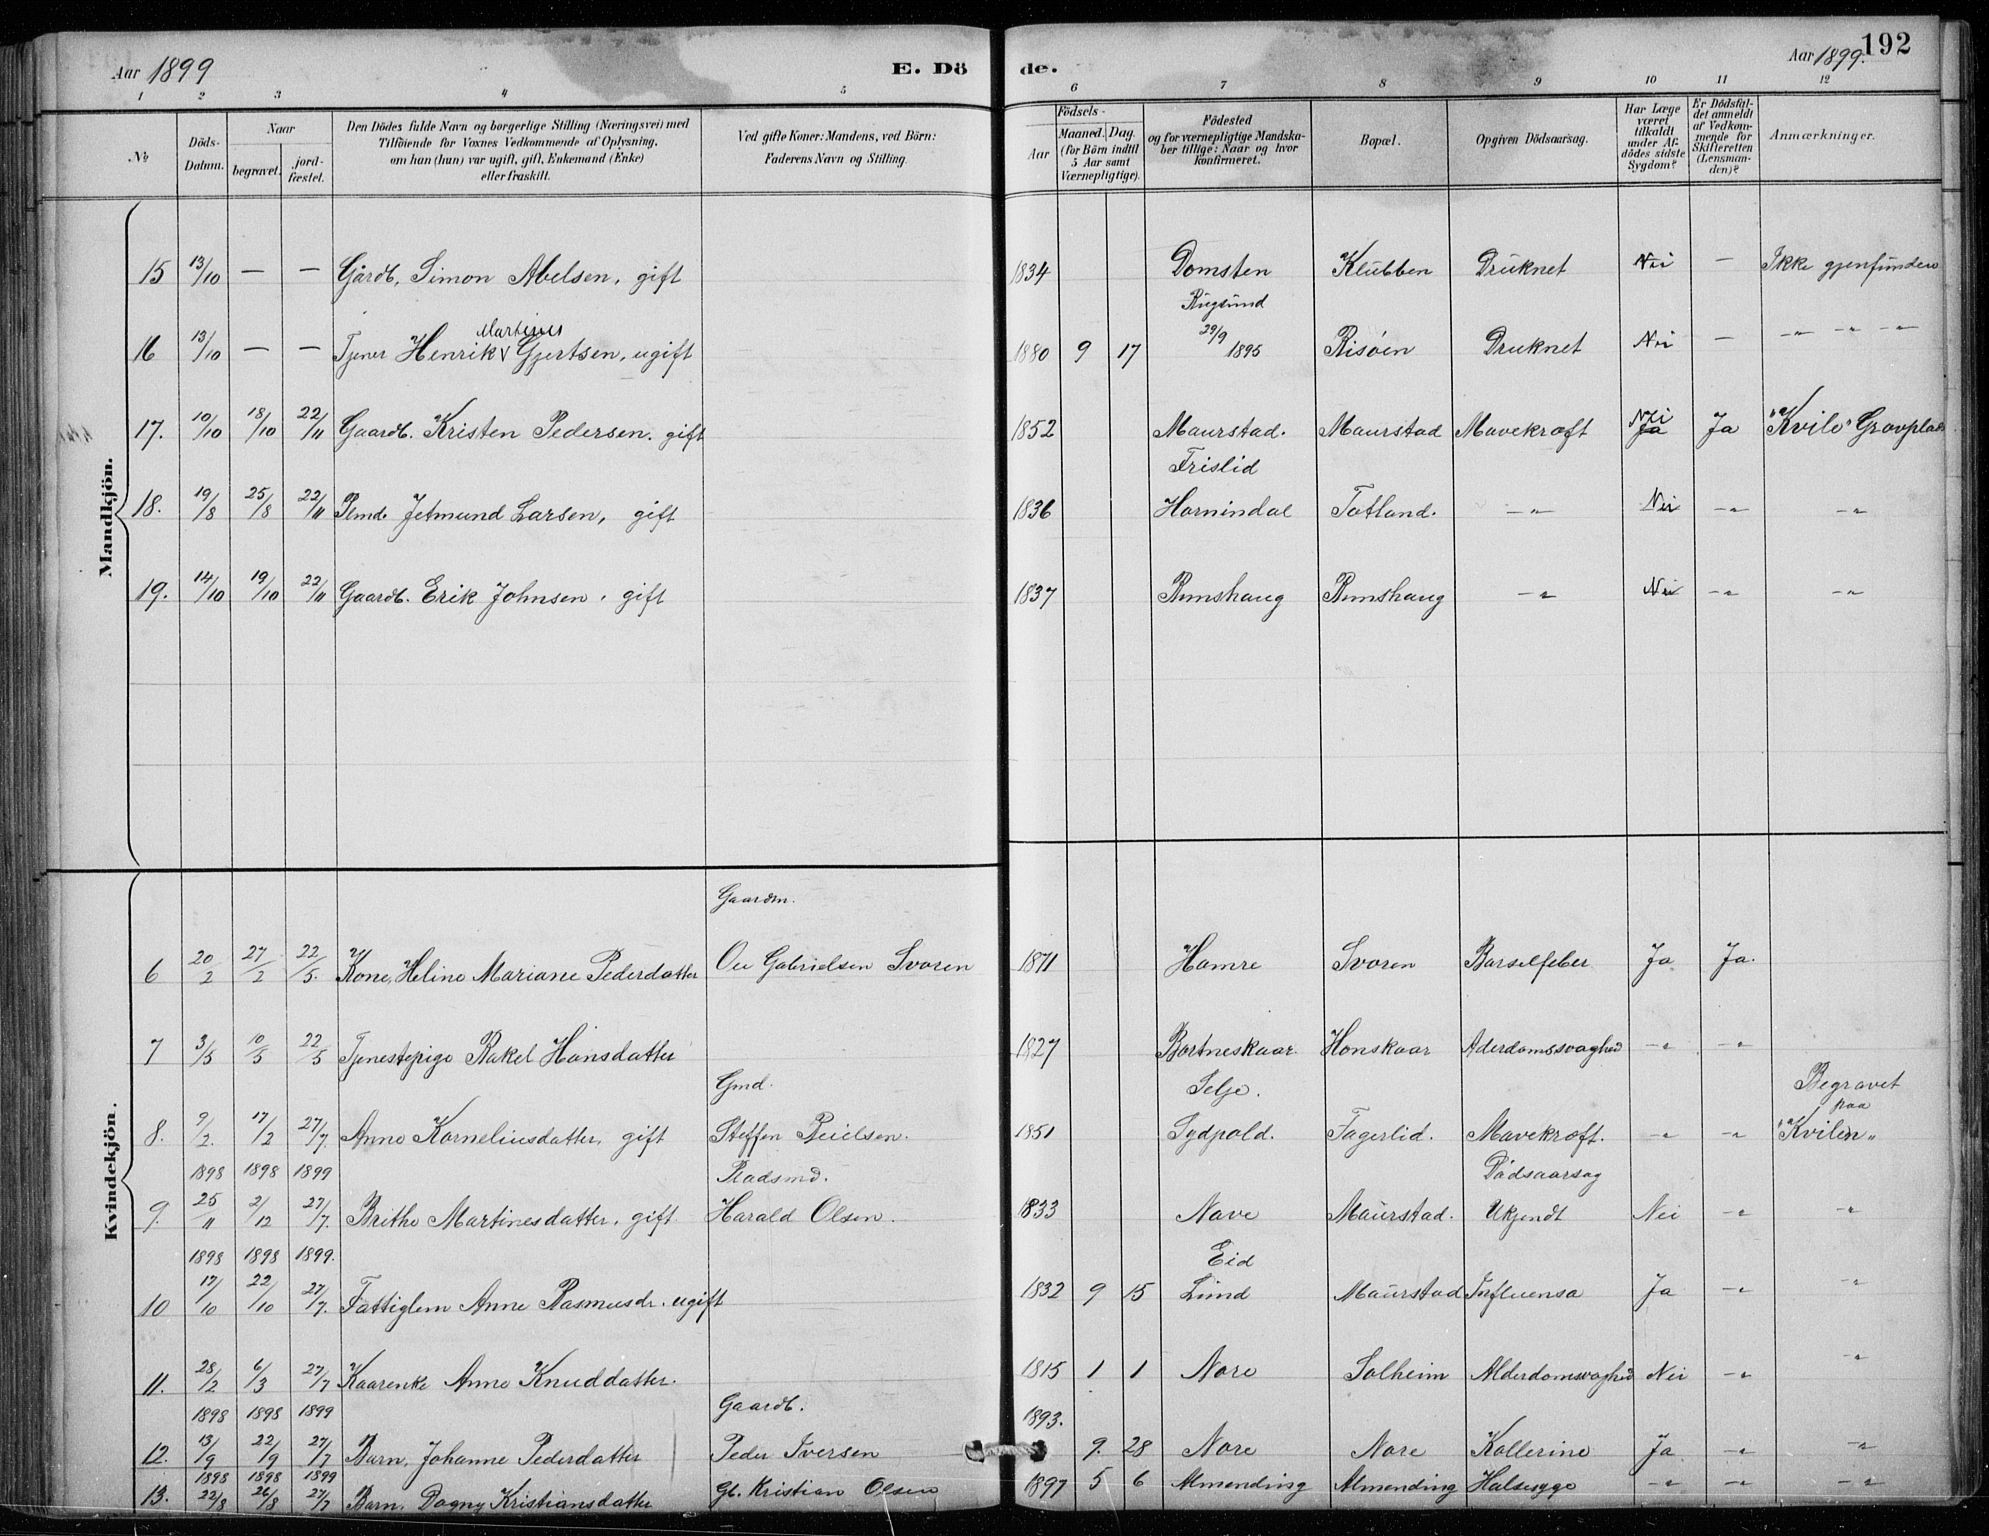 Aar 1899
E. Dö
de.
Aar 1899.
192
1 2 3 4 5 6 7 8 9 10 11 12
No
Döds-Datum.
Naar
begravet.
jord-fæstet.
Den Dödes fulde Navn og borgerlige Stilling (Næringsvei) med
Tilföiende for Voxnes Vedkommende af Oplysning,
om han (hun) var ugift, gift, Enkemand (Enke)
eller fraskilt.
Ved gifte Koner: Mandens, ved Börn:
Faderens Navn og Stilling.
Födsels-
Aar
Maaned. Dag.
(for Börn indtil
5 Aar samt
Værnepligtige).
Födested
og for værnepligtige Mandska-
ber tillige: Naar og hvor
konfirmeret.
Bopæl.
Opgiven Dödsaarsag.
Har Læge
været
tilkaldt
under Af-
dödes sidste
Sygdom?
Er Dödsfal-
det anmeldt
af Vedkom-
mende for
Skifteretten
(Lensman-
den)?
Anmærkninger.
Mandkjön.
15 13/10 — — Gårdb. Simon Abelsen, gift 1834 Domsten Klubben Druknet Nei — Ikke gjenfunden
Rugsund
Martinus
16 13/10 — — Tjener Henrik Gjertsen, ugift 1880 9 17 29/9 1895 Risöen Druknet Nei — -"- -"- -"-
17. 10/10 18/10 22/11 Gaardb. Kristen Pedersen. gift 1852 Maurstad. Maurstad Mavekræft Nei Ja Ja "Kvile" Gravplads
Frislid
18. 19/8 25/8 22/11 Plmd. Jetmund Larsen, gift 1836 Hornindal Totland. -"- Nei -"- -"-
19. 14/10 19/10 22/11 Gaardb. Erik Johnsen. gift 1837 Rimshaug Rimshaug -"- Nei -"- -"-
Kvindekjön.
Gaardm.
6 20/2 27/2 22/5. Kone, Heline Mariane Pederdatter Ole Gabrielsen Svoren 1871 Hamre Svoren Barselfeber Ja Ja.
7 3/5 10/5 22/5 Tjenestepige Rakel Hansdatter 1827 Bortneskaar. Honskaar Aderdomssvaghed -"- -"-
Gmd. Selje. Begravet
paa
8. 9/2. 17/2 27/7. Anne Korneliusdatter, gift Steffen 1851 Sydpold. Fagerlid. Mavekræft. -"- -"- "Kvilen"
1898 1898 1899 Pladsmd. Dödsaarsag
9. 25/11 2/12 27/7. Brithe Martinesdatter, gift. Harald Olsen. 1833 Nave Maurstad. Ukjendt Nei -"- -"-
1898 1898 1899. Eid
10 17/10 22/10 27/7. Fattiglem Anne Rasmusdr. ugift 1832 9 15 Lund Maurstad Influensa Ja -"- -"-
11. 28/2 6/3 27/7 Kaarenke Anne Knuddatter. 1815 1 1 Nore Solheim Alderdomsvaghed Nei -"- -"-
1898 1898 1899 Gaardb. 1893.
12. 13/9 22/9 27/7 Barn, Johanne Pederdatter Peder Iversen 9. 28 Nore Nore Kollerine Ja -"- -"-
1898 1898 1899
13. 22/8 26/8 27/7 Barn. Dagny Kristiansdatter Gb. Kristian Olsen 1897 5 6 Almending Almending Halsesyge -"- -"- -"-